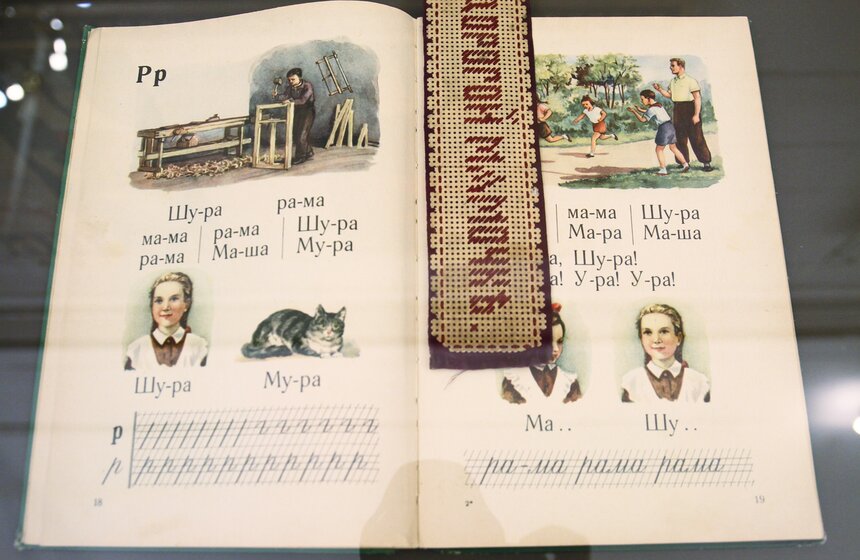 Рр
Шу-ра ра-ма
ма-ма ра-ма Шу-ра
ра-ма Ма-ша Му-ра
Шу-ра Му-ра
р
р р р р р р р р р р р р р
18
ДОРОГОЙ МАМОЧКѢ.
ма-ма Шу-ра
Ма-ра Ма-ша
Шу-ра!
У-ра! У-ра!
Ма . . Шу . .
ра-ма рама рама
2* 19